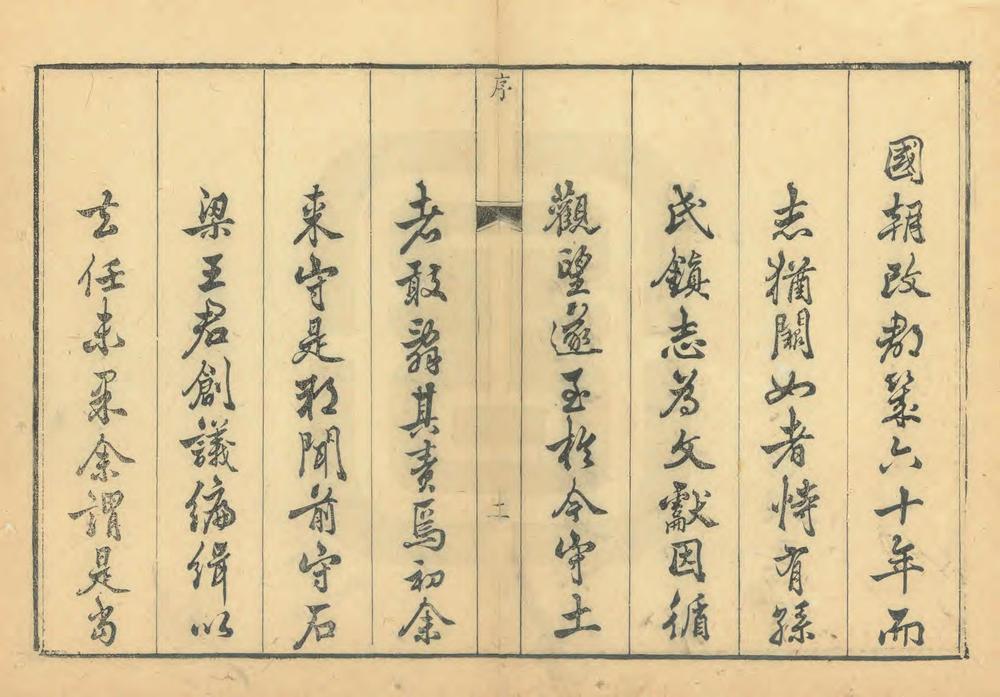 國朝改郡幾六十年而
志猶闕如者恃有孫
氏鎮志為文獻因循
觀望遂至於今守土
序
者敢辭其責焉初余
來守是邦聞前守石
梁王君創議編緝以
去任未果余謂是當